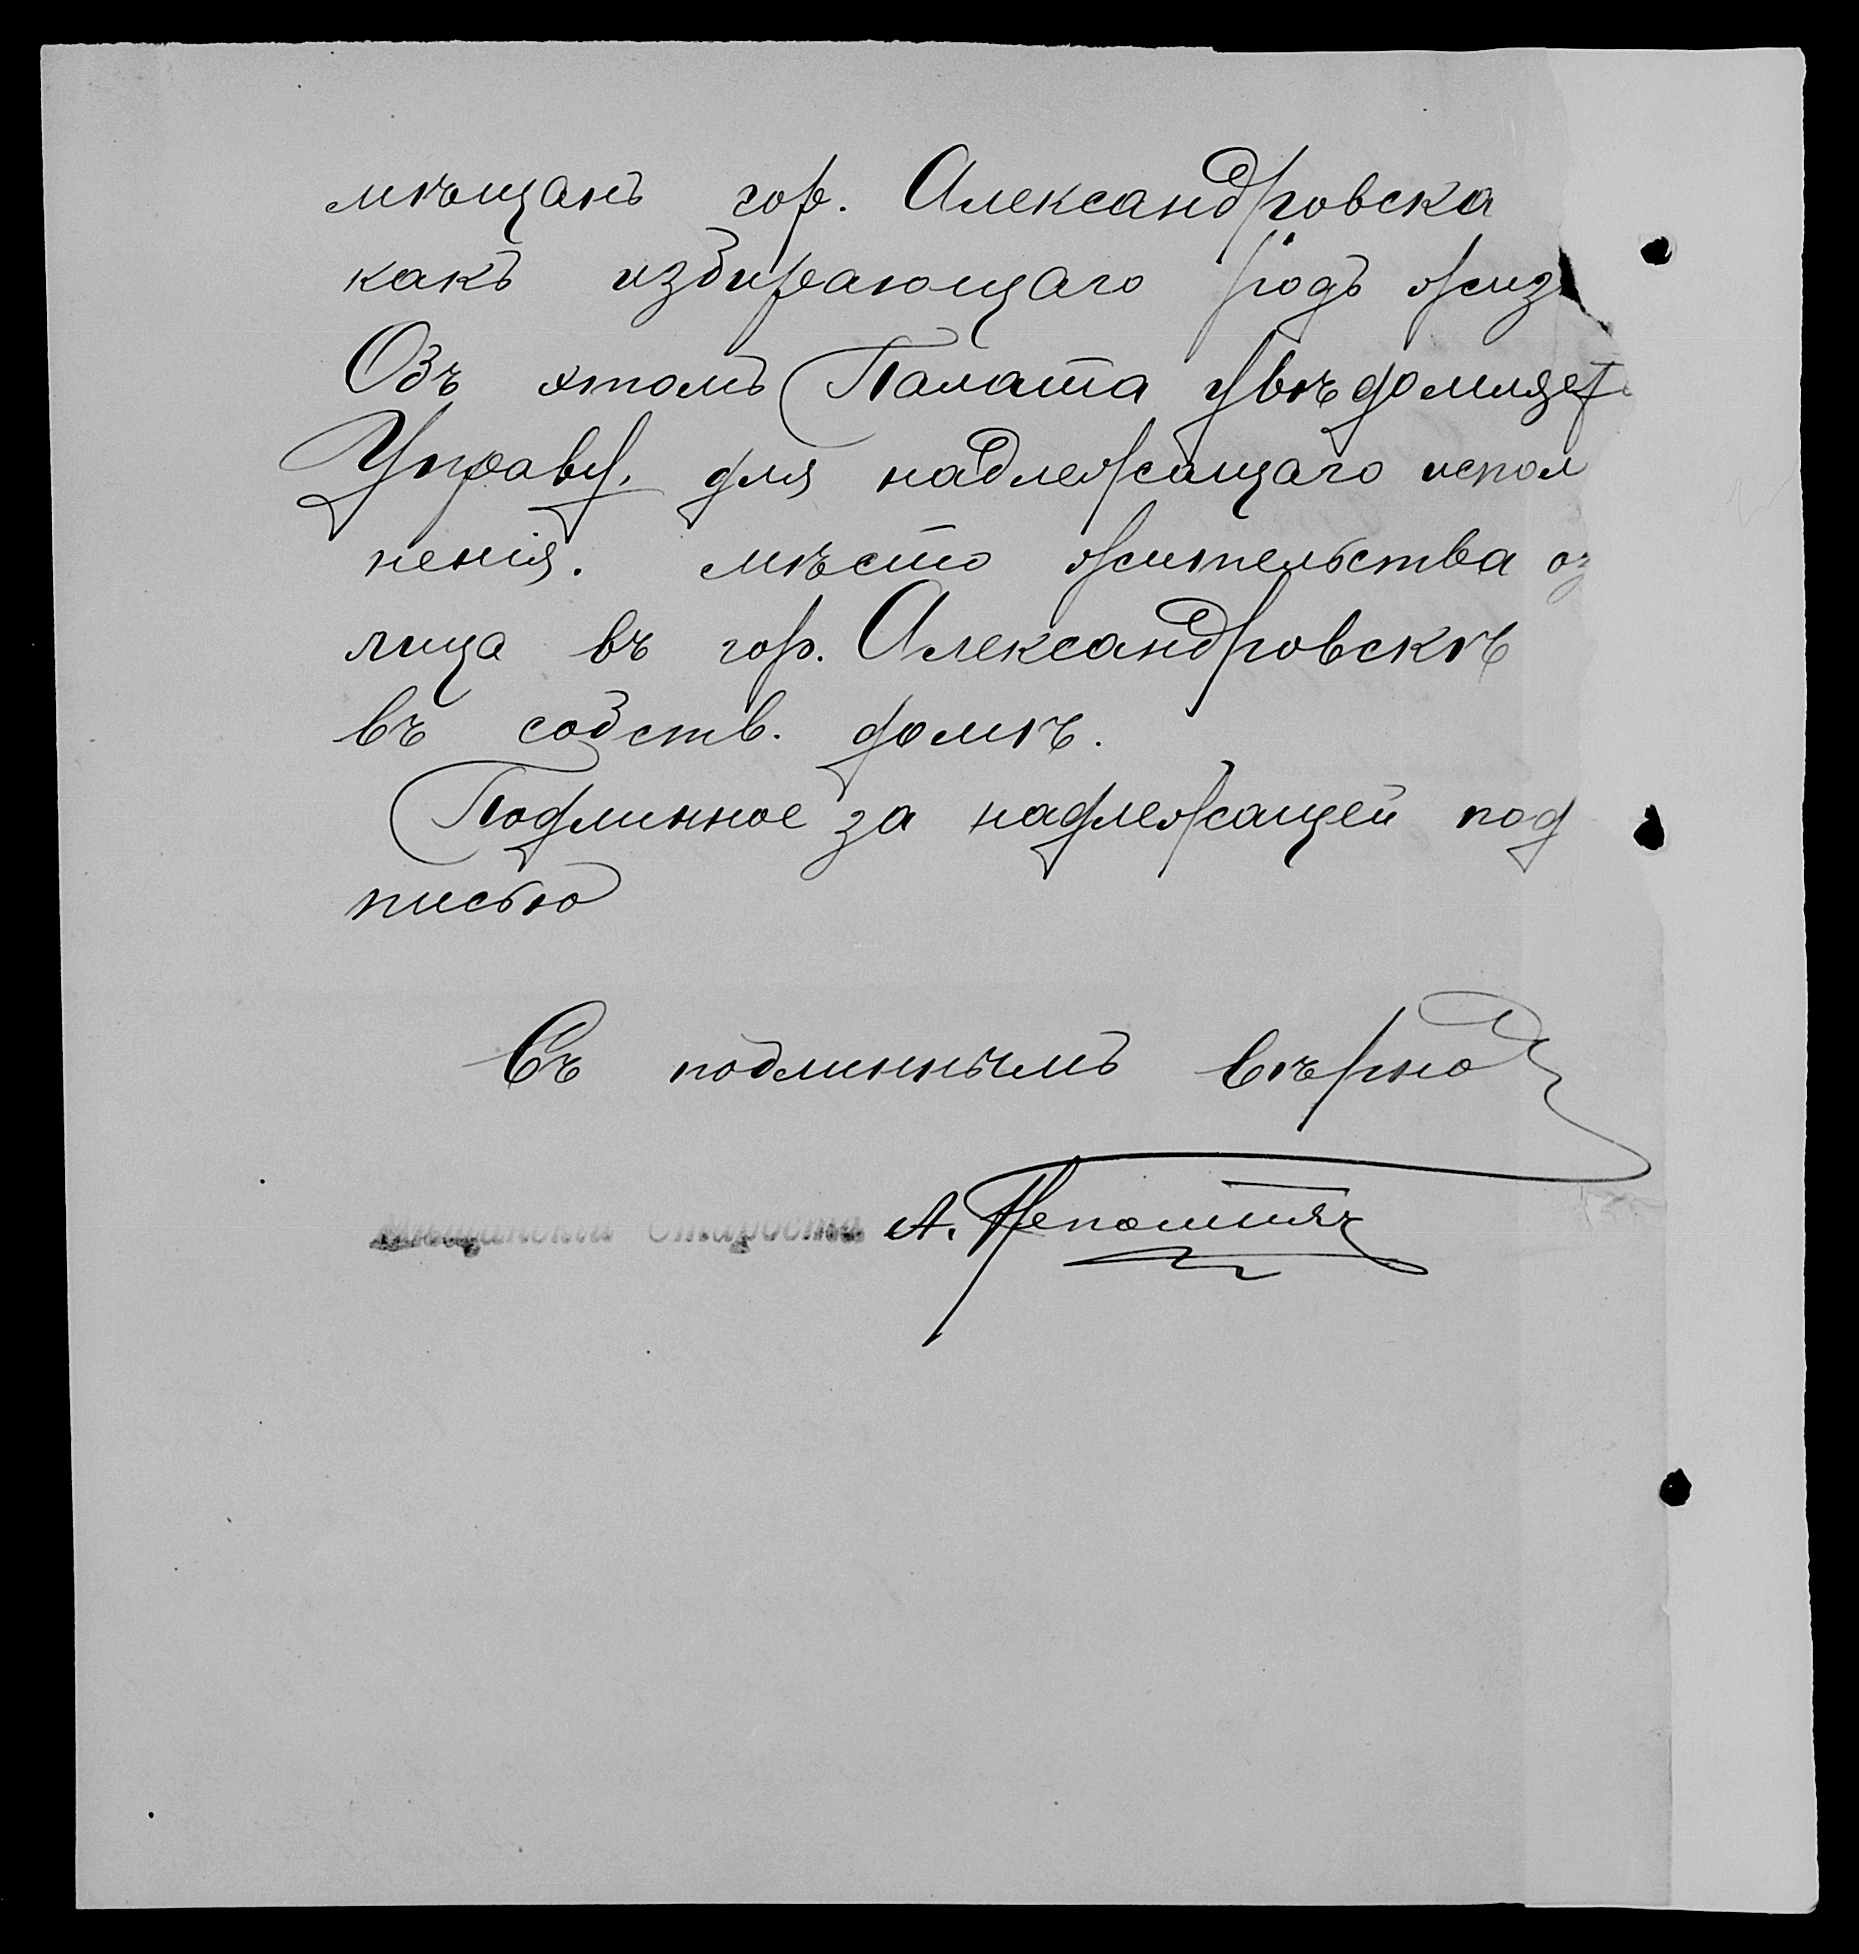 мѣщанъ гор. Александровска
какъ избирающаго родъ жиз
Объ этомъ Палата увѣдомляет
Управу, для надлежащаго испол
ненія. мѣсто жительства оз
лица въ гор. Александровскѣ
въ собств. домѣ.
Подлинное за надлежащей под
писью
Съ подлиннымъ вѣрно
Мѣщанскій Староста А.